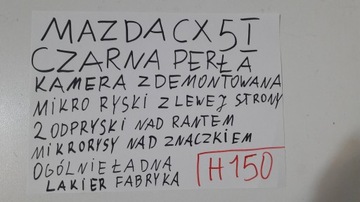 MAZDA CX5 I
CZARNA PERŁA
KAMERA ZDEMONTOWANA
MIKRO RYSKI Z LEWEJ STRONY
2 ODPRYSKI NAD RANTEM
MIKRORYSY NAD ZNACZKIEM
OGÓLNIE ŁADNA
LAKIER FABRYKA
H150